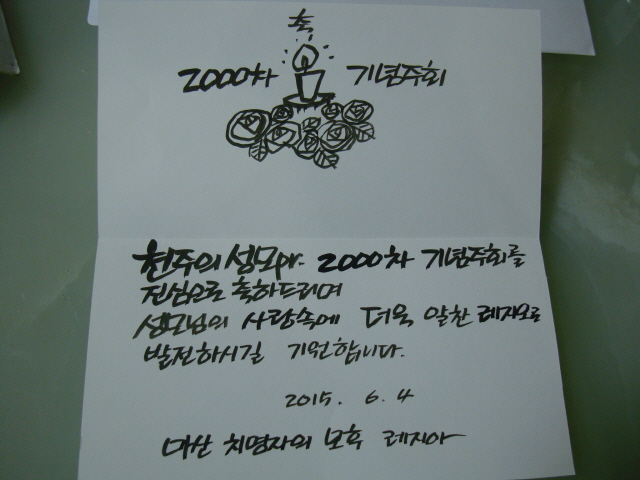 축
2000차 기념주회
현주의 성모pr. 2000차 기념주회를
진심으로 축하드리며
성모님의 사랑속에 더욱 알찬 레지오로
발전하시길 기원합니다.
2015. 6. 4
마산 치명자의 모후 레지아